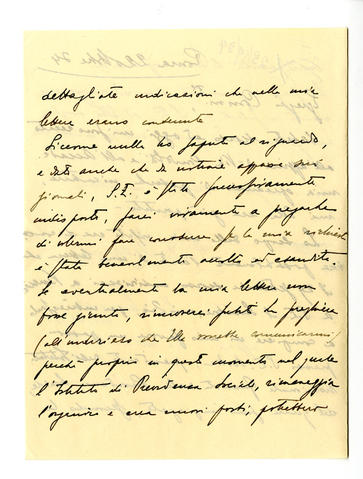 dettagliate indicazioni che nella mia
lettera erano contenute.
Siccome nulla ho saputo al riguardo,
e dato anche che da notizie apparse sui
giornali, S.E. è stata
indisposto, farei vivamente a pregarla
di volermi fare conoscere se la mia richiesta
è stata benevolmente accolta ed esaudita.
Se eventualmente la mia lettera non
fosse giunta, rinnoverei potete la preghiera
(all'indirizzo che Ella vorrebbe comunicarmi)
perchè proprio in questo momento nel quale
l'Istituto di Previdenza Sociale, rimaneggia
l'organico e crea nuovi posti, potrebbero